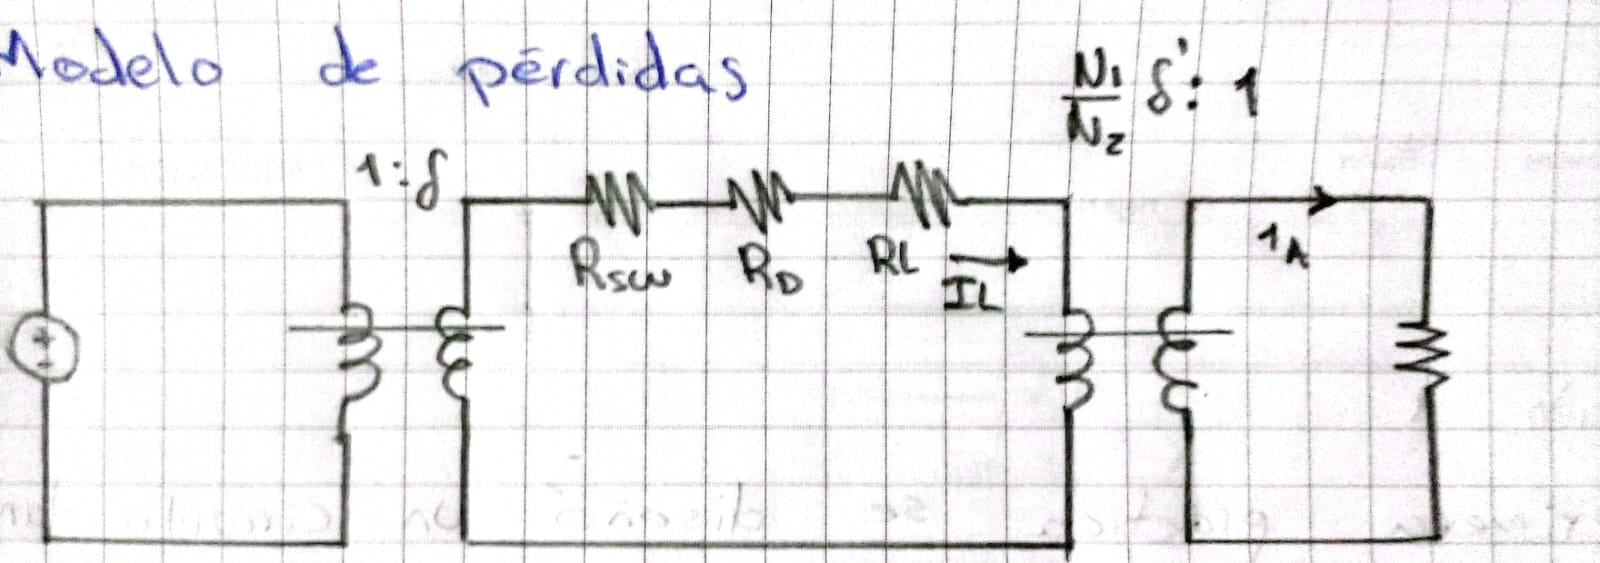 Modelo de pérdidas
N1
N2
δ': 1
1:δ
Rsw
RD
RL
IL
1A
+
-